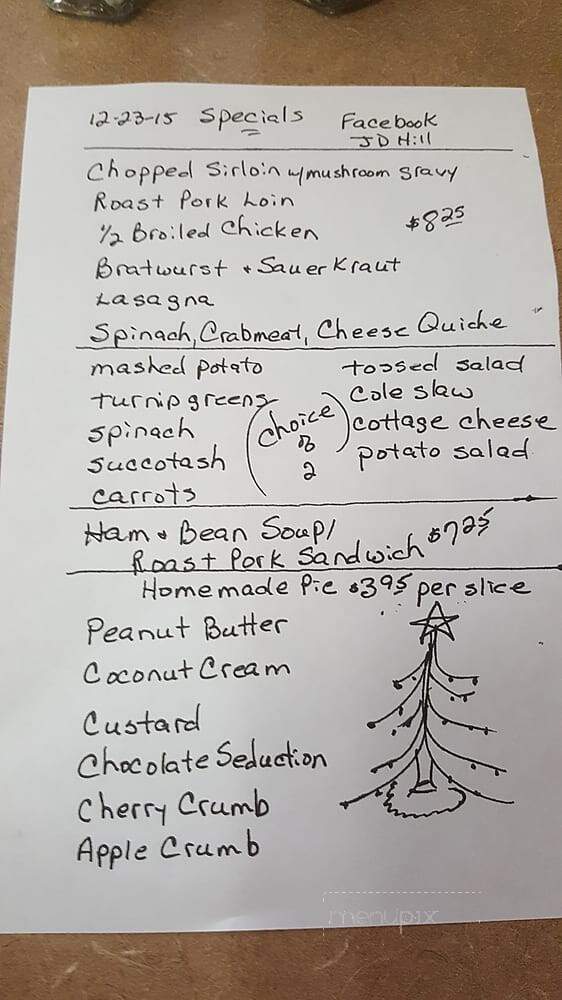 12-23-15 Specials Facebook
JD Hill
Chopped Sirloin w/mushroom gravy
Roast Pork Loin
1/2 Broiled Chicken $8.25
Bratwurst + SauerKraut
Lasagna
Spinach, Crabmeat, Cheese Quiche
mashed potato
turnip greens
spinach
succotash
carrots
(choice
of
2)
tossed salad
Cole slaw
cottage cheese
potato salad
Ham + Bean Soup/
Roast Pork Sandwich $7.25
Homemade Pie $3.95 per slice
Peanut Butter
Coconut Cream
Custard
Chocolate Seduction
Cherry Crumb
Apple Crumb
menupix